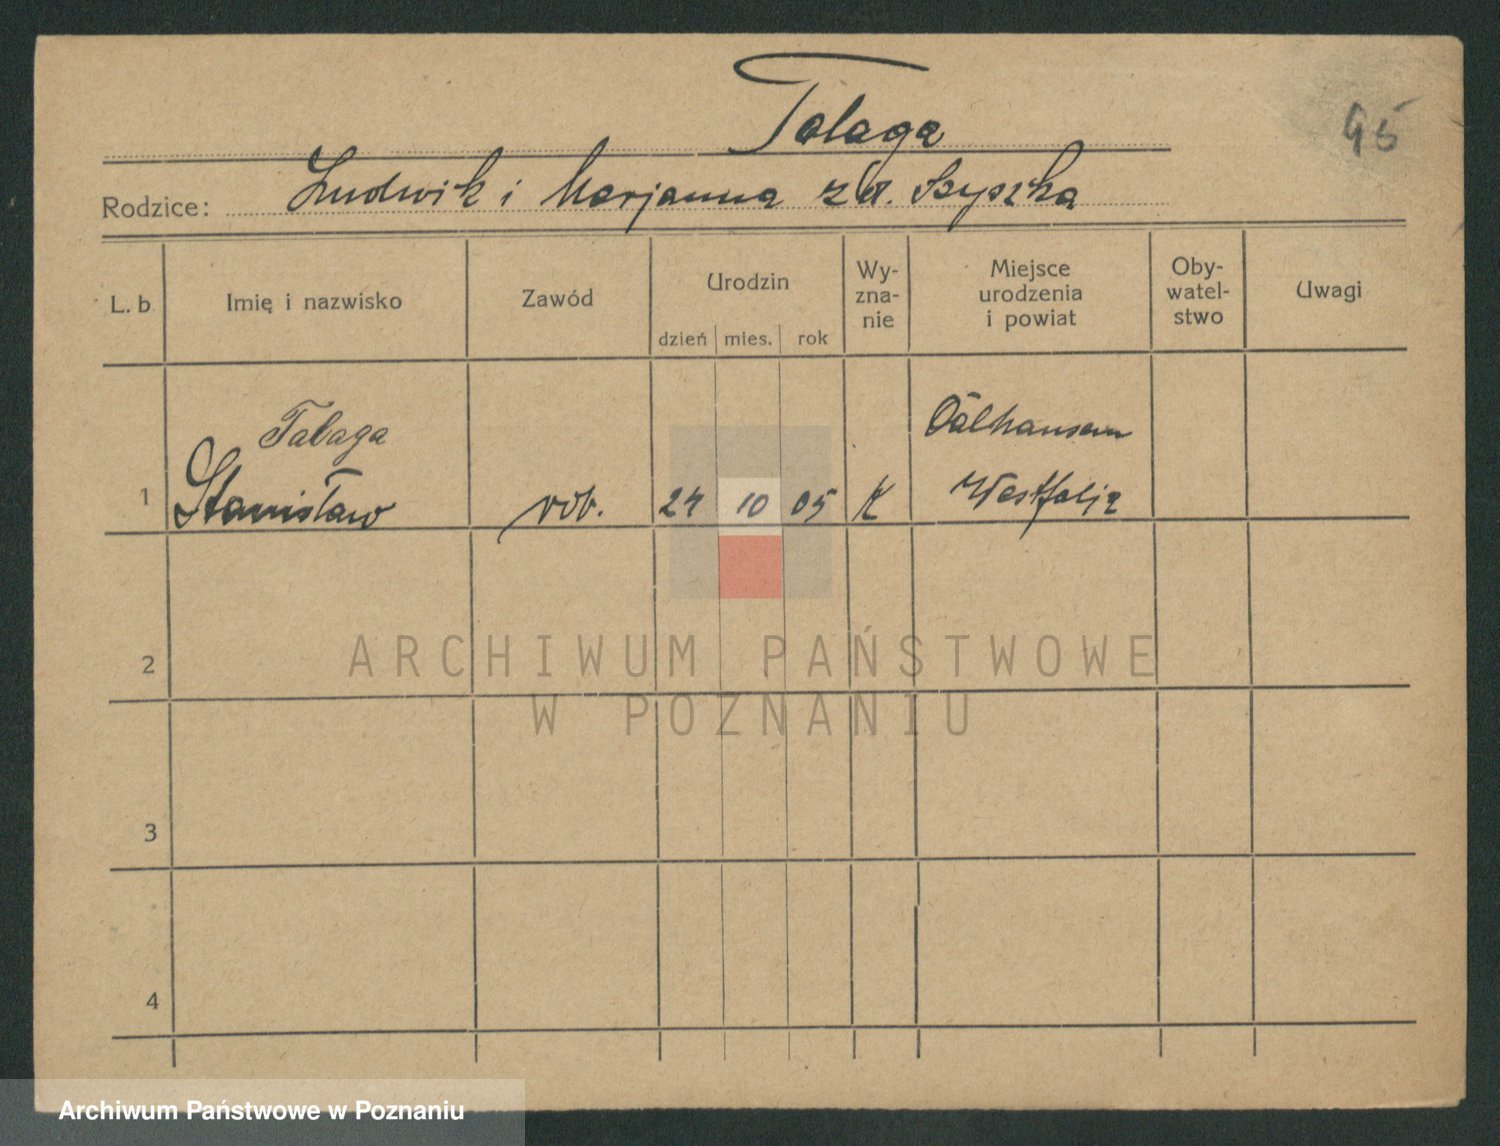 Talaga
95
Rodzice: Ludwik i Marjanna z d. Szyszka
L. b. Imię i nazwisko Zawód Urodzin dzień mies. rok Wy-zna-nie Miejsce urodzenia i powiat Oby-watel-stwo Uwagi
Talaga
1 Stanisław rob. 24 10 05 K Westfalja
2
3
4
ARCHIWUM PAŃSTWOWE
W POZNANIU
Archiwum Państwowe w Poznaniu